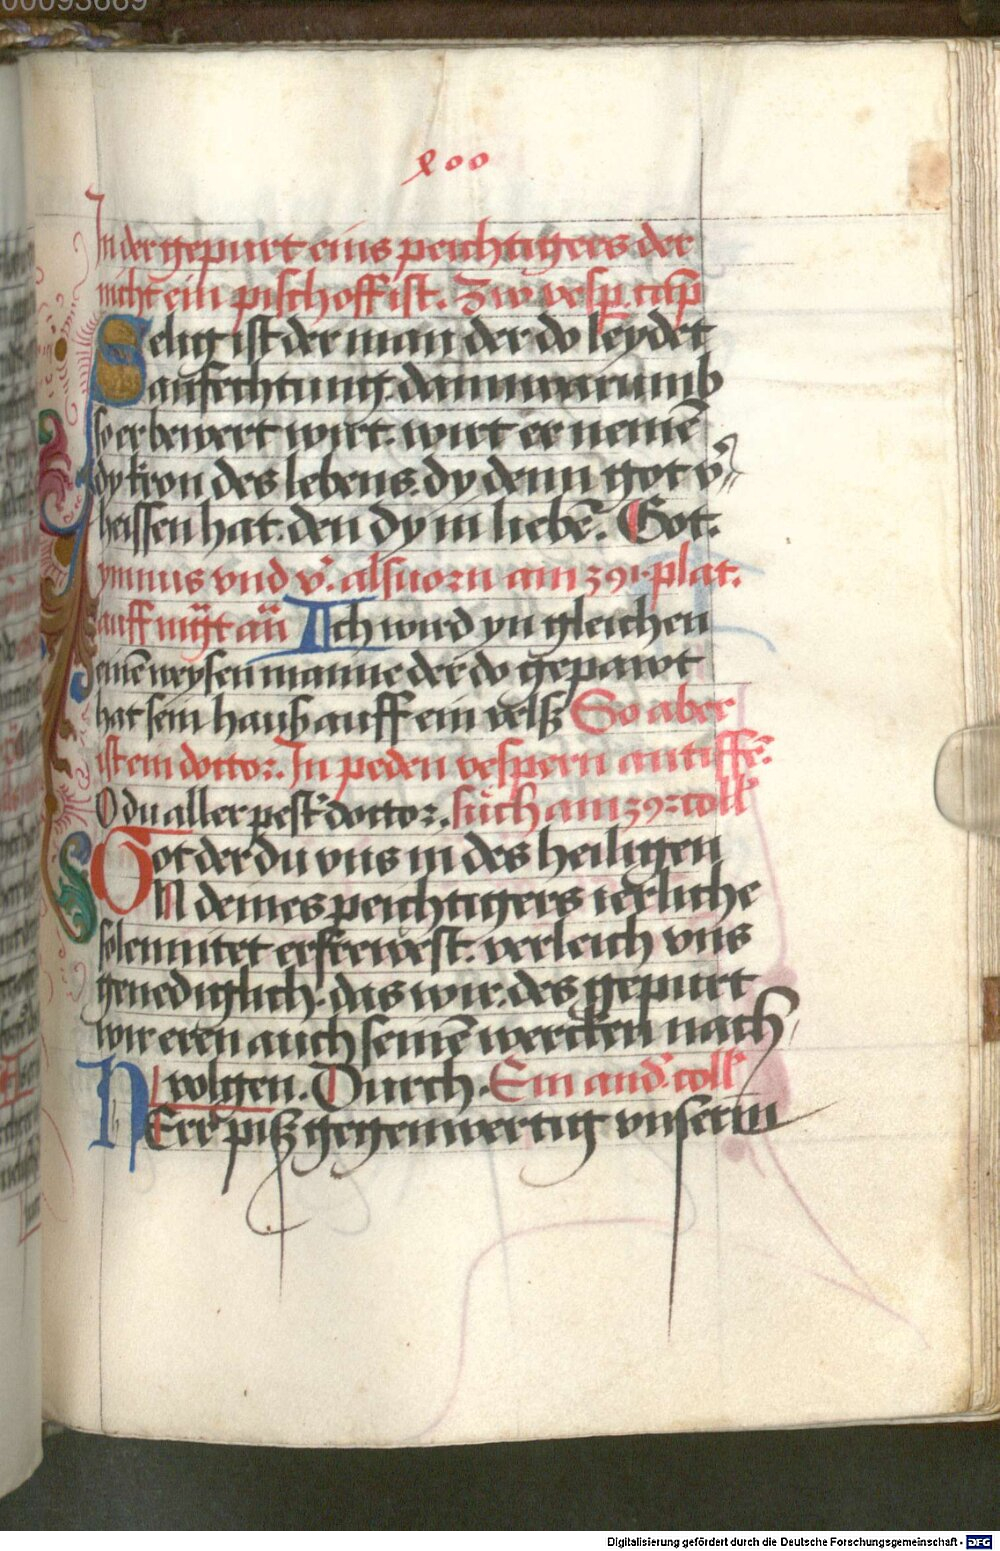 00093669
400
In der gepurt eins peichtigers der
nicht ein pischoff ist. Zw vesp. cap
Selig ist der man der do leydet
anfechtung. dann warumb
so er bewert wirt. wirt er nemē
dy kron des lebens. dy denn got v̄
heissen hat. den dy in liebē. Got.
ymnus vnd v̄. als uorn am 391. plat.
auff mg̅t an̄ Ich wird yn gleichen
einē weysen manne der do gepawt
hat sein hauß auff ein velß So aber
ist ein doctor. In peden vespern antiffē.
O du aller pest̄ doctor. such am 392 coll̄
Got der du vns in des heiligen
N deines peichtigers ierliche
solennitet erfrewest. verleich vns
genediglich. das wir. des gepurt
wir eren auch seinē wercken nach
volgen. Durch. Ein and̄ coll̄
HErr piß gegenwertig vnserm
Digitalisierung gefördert durch die Deutsche Forschungsgemeinschaft - DFG